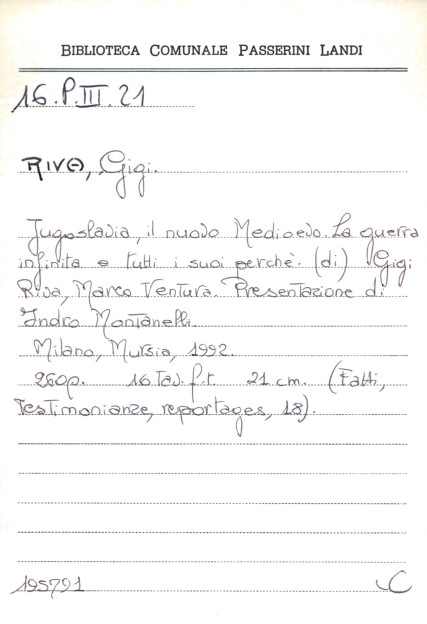 BIBLIOTECA COMUNALE PASSERINI LANDI
16.P.III.21
RIVA, Gigi.
Jugoslavia, il nuovo Medioevo. La guerra
infinita e tutti i suoi perchè. (di) Gigi
Riva, Marco Ventura. Presentazione di
Indro Montanelli.
Milano, Mursia, 1992.
260p. 16 Tav. f.t. 21 cm. (Fatti,
testimonianze, reportages, 18).
195791 C